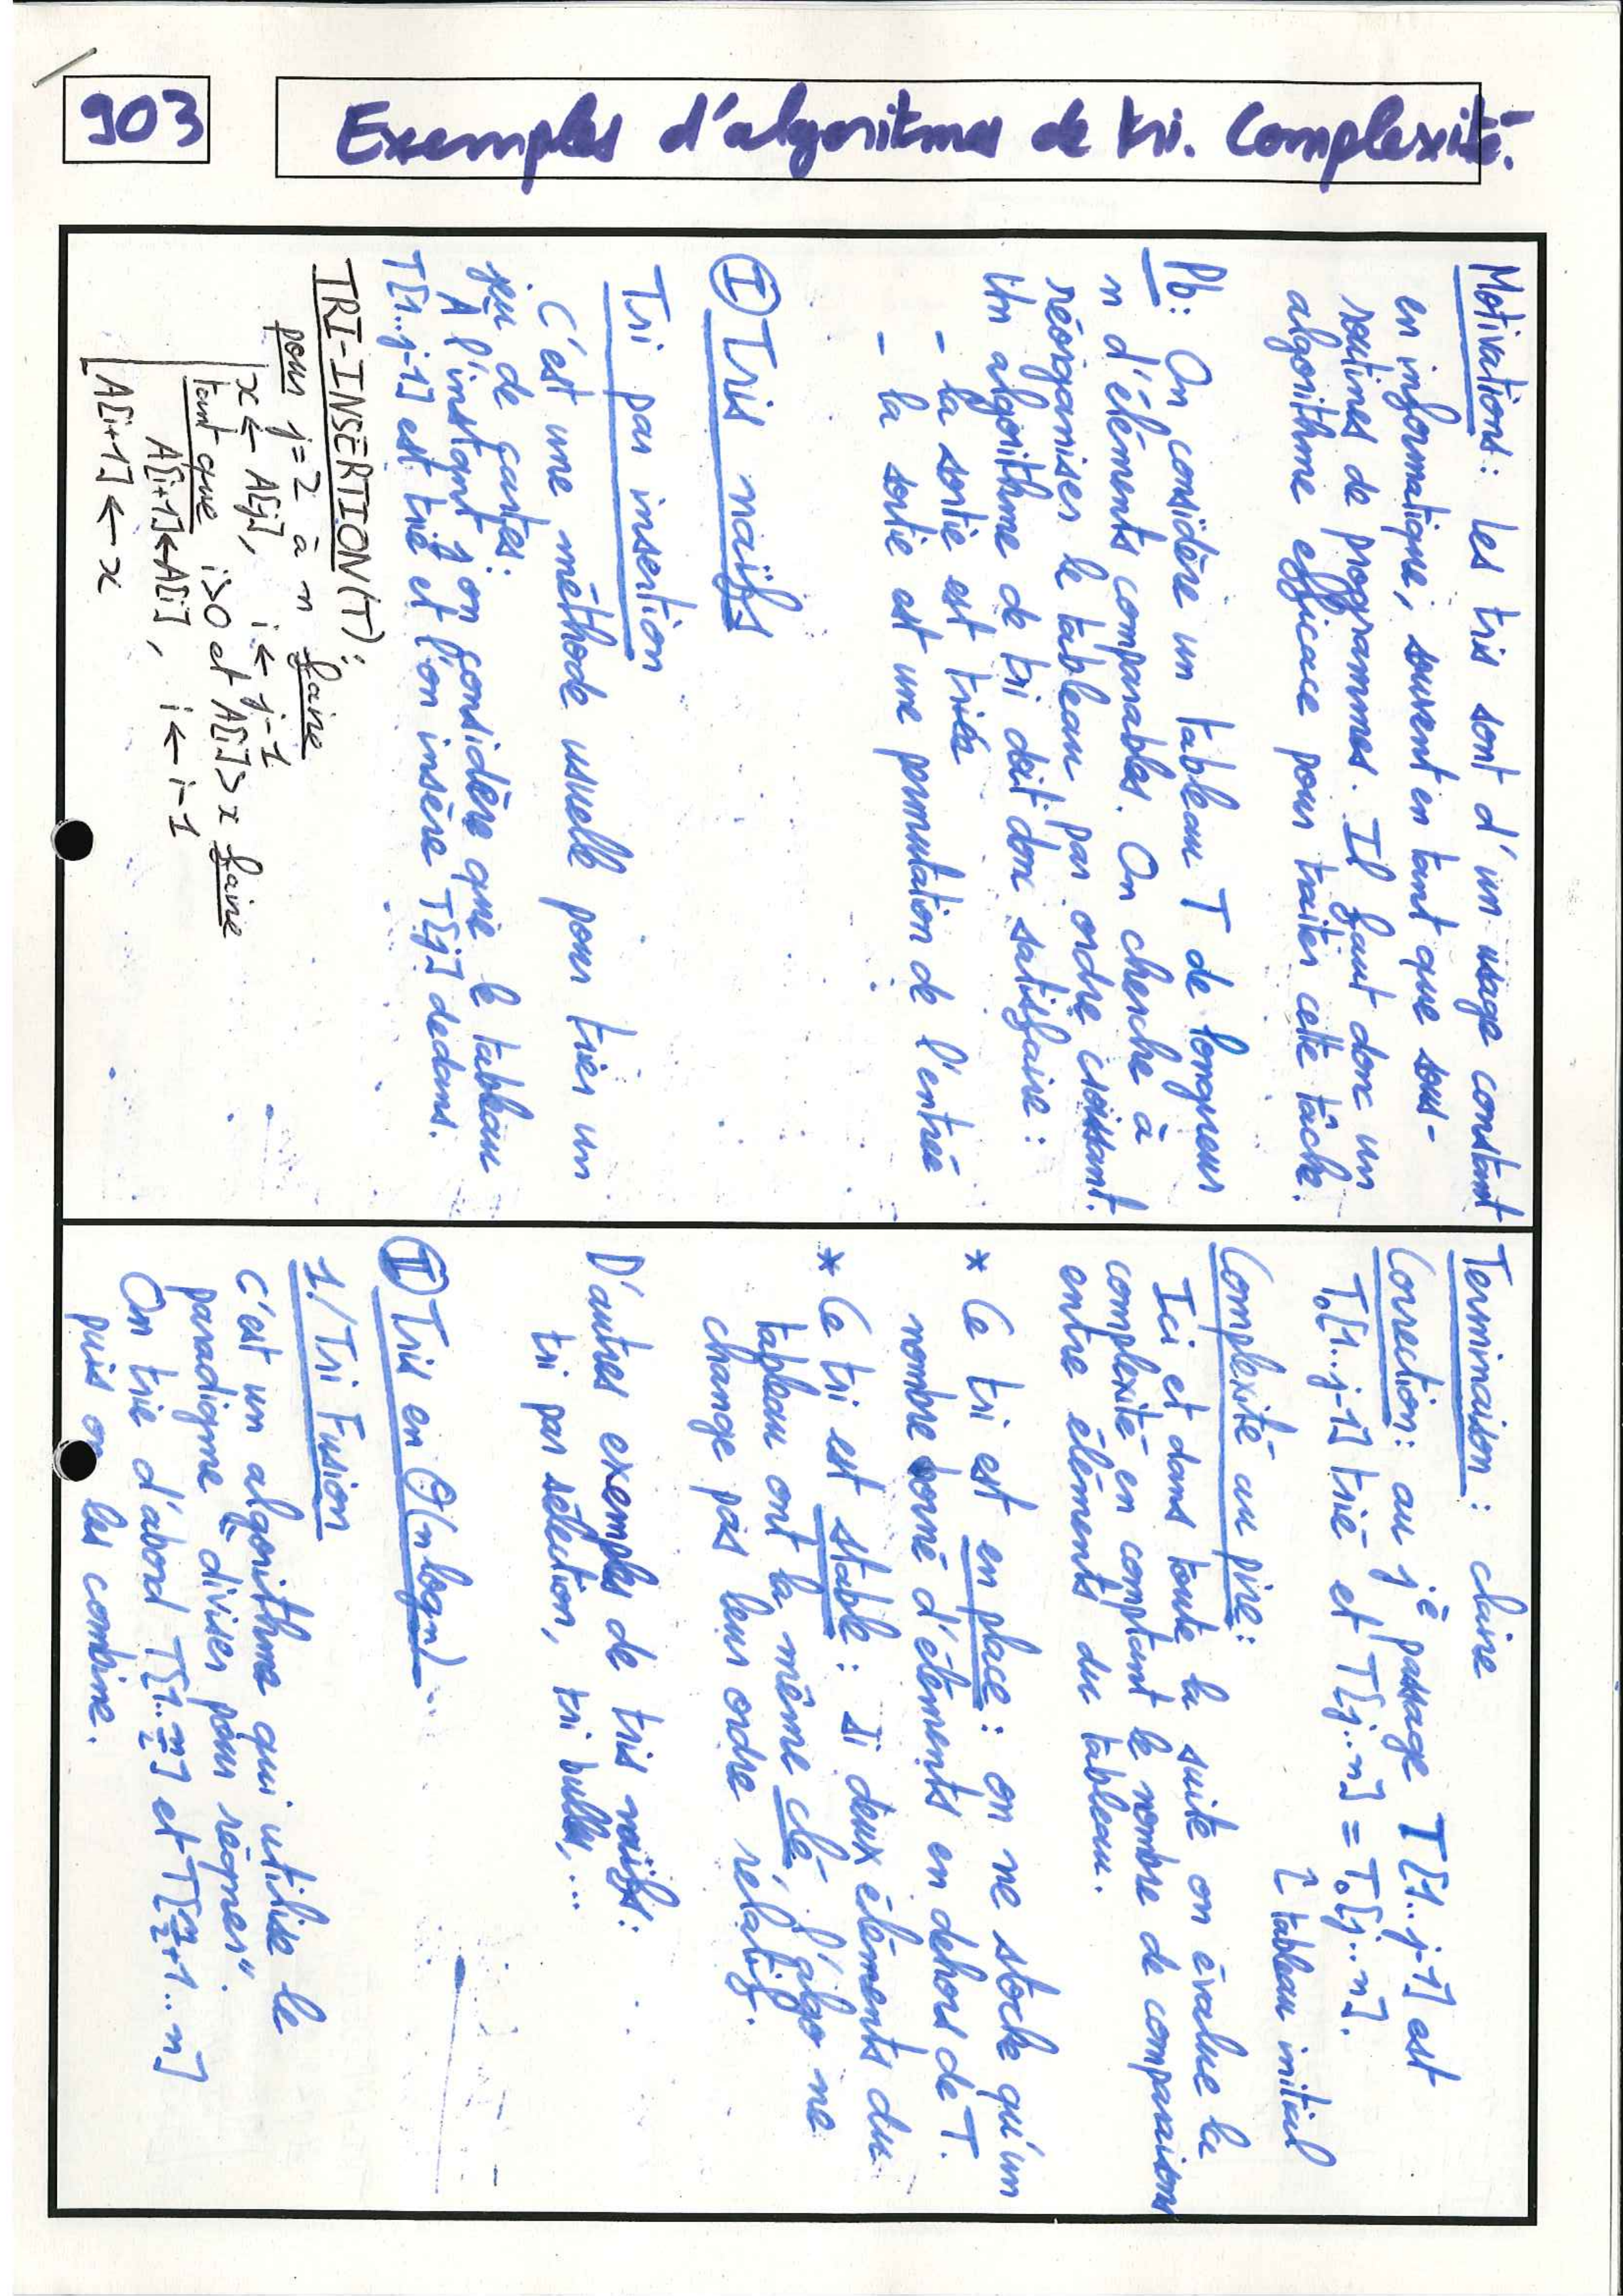 903
Exemples d'algoritmes de tri. Complexité.
Motivations: Les tris sont d'un usage constant
en informatique, souvent en tant que sous-
routines de programmes. Il faut donc un
algorithme efficace pour traiter cette tâche.
Pb: On considère un tableau T de longueur
n d'éléments comparables. On cherche à
réorganiser le tableau par ordre croissant.
Un algorithme de tri doit donc satisfaire:
- la sortie est triée
- la sortie est une permutation de l'entrée
I) Tris naïfs
Tri par insertion
C'est une méthode usuelle pour trier un
jeu de cartes:
A l'instant j on considère que le tableau
T[1..j-1] est trié et l'on insère T[j] dedans.
TRI-INSERTION(T):
pour j=2 à n faire
x ← A[j], i ← j-1
tant que i>0 et A[i]>x faire
A[i+1]←A[i], i ← i-1
A[i+1] ← x
Terminaison: claire
Correction: au jè passage T[1..j-1] est
T₀[1..j-1] trié et T[j..n] = T₀[j..n].
↑ tableau initial
Complexité au pire:
Ici et dans toute la suite on évalue la
complexité en comptant le nombre de comparaisons
entre éléments du tableau.
* Ce tri est en place: on ne stocke qu'un
nombre borné d'éléments en dehors de T.
* Ce tri est stable: si deux éléments du
tableau ont la même clé, l'algo ne
change pas leur ordre relatif.
D'autres exemples de tris naïfs:
tri par sélection, tri bulle,...
II) Tris en O(n log n)
1./ Tri Fusion
C'est un algorithme qui utilise le
paradigme "diviser pour régner".
On trie d'abord T[1..n/2] et T[n/2+1..n]
puis on les combine.